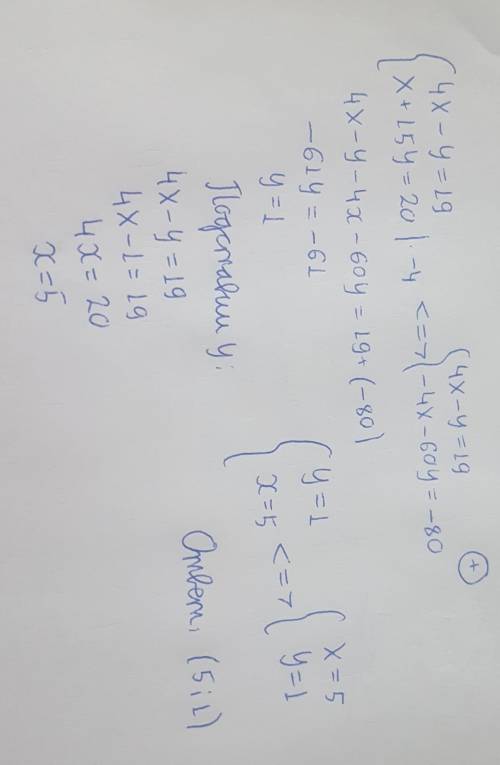 { 4x - y = 19
{ x + 15y = 20 | · -4 <=> { 4x - y = 19
{ -4x - 60y = -80 +
4x - y - 4x - 60y = 19 + (-80)
-61y = -61
y = 1
Подставим y:
4x - y = 19
4x - 1 = 19
4x = 20
x = 5
{ y = 1
{ x = 5 <=> { x = 5
{ y = 1
Ответ: (5; 1)